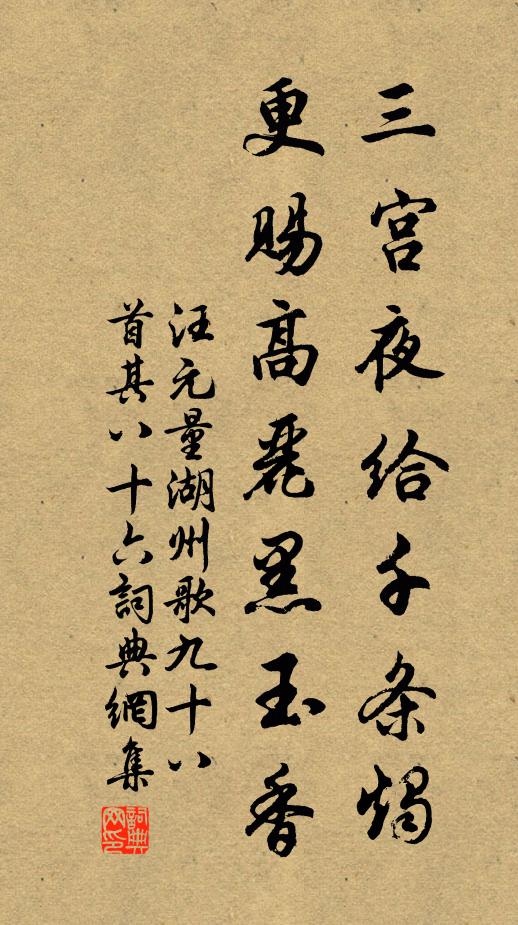 三宫夜给千条烛
更赐高丽黑玉香
汪元量湖州歌九十八
首其八十六詞典網集
詞典網印